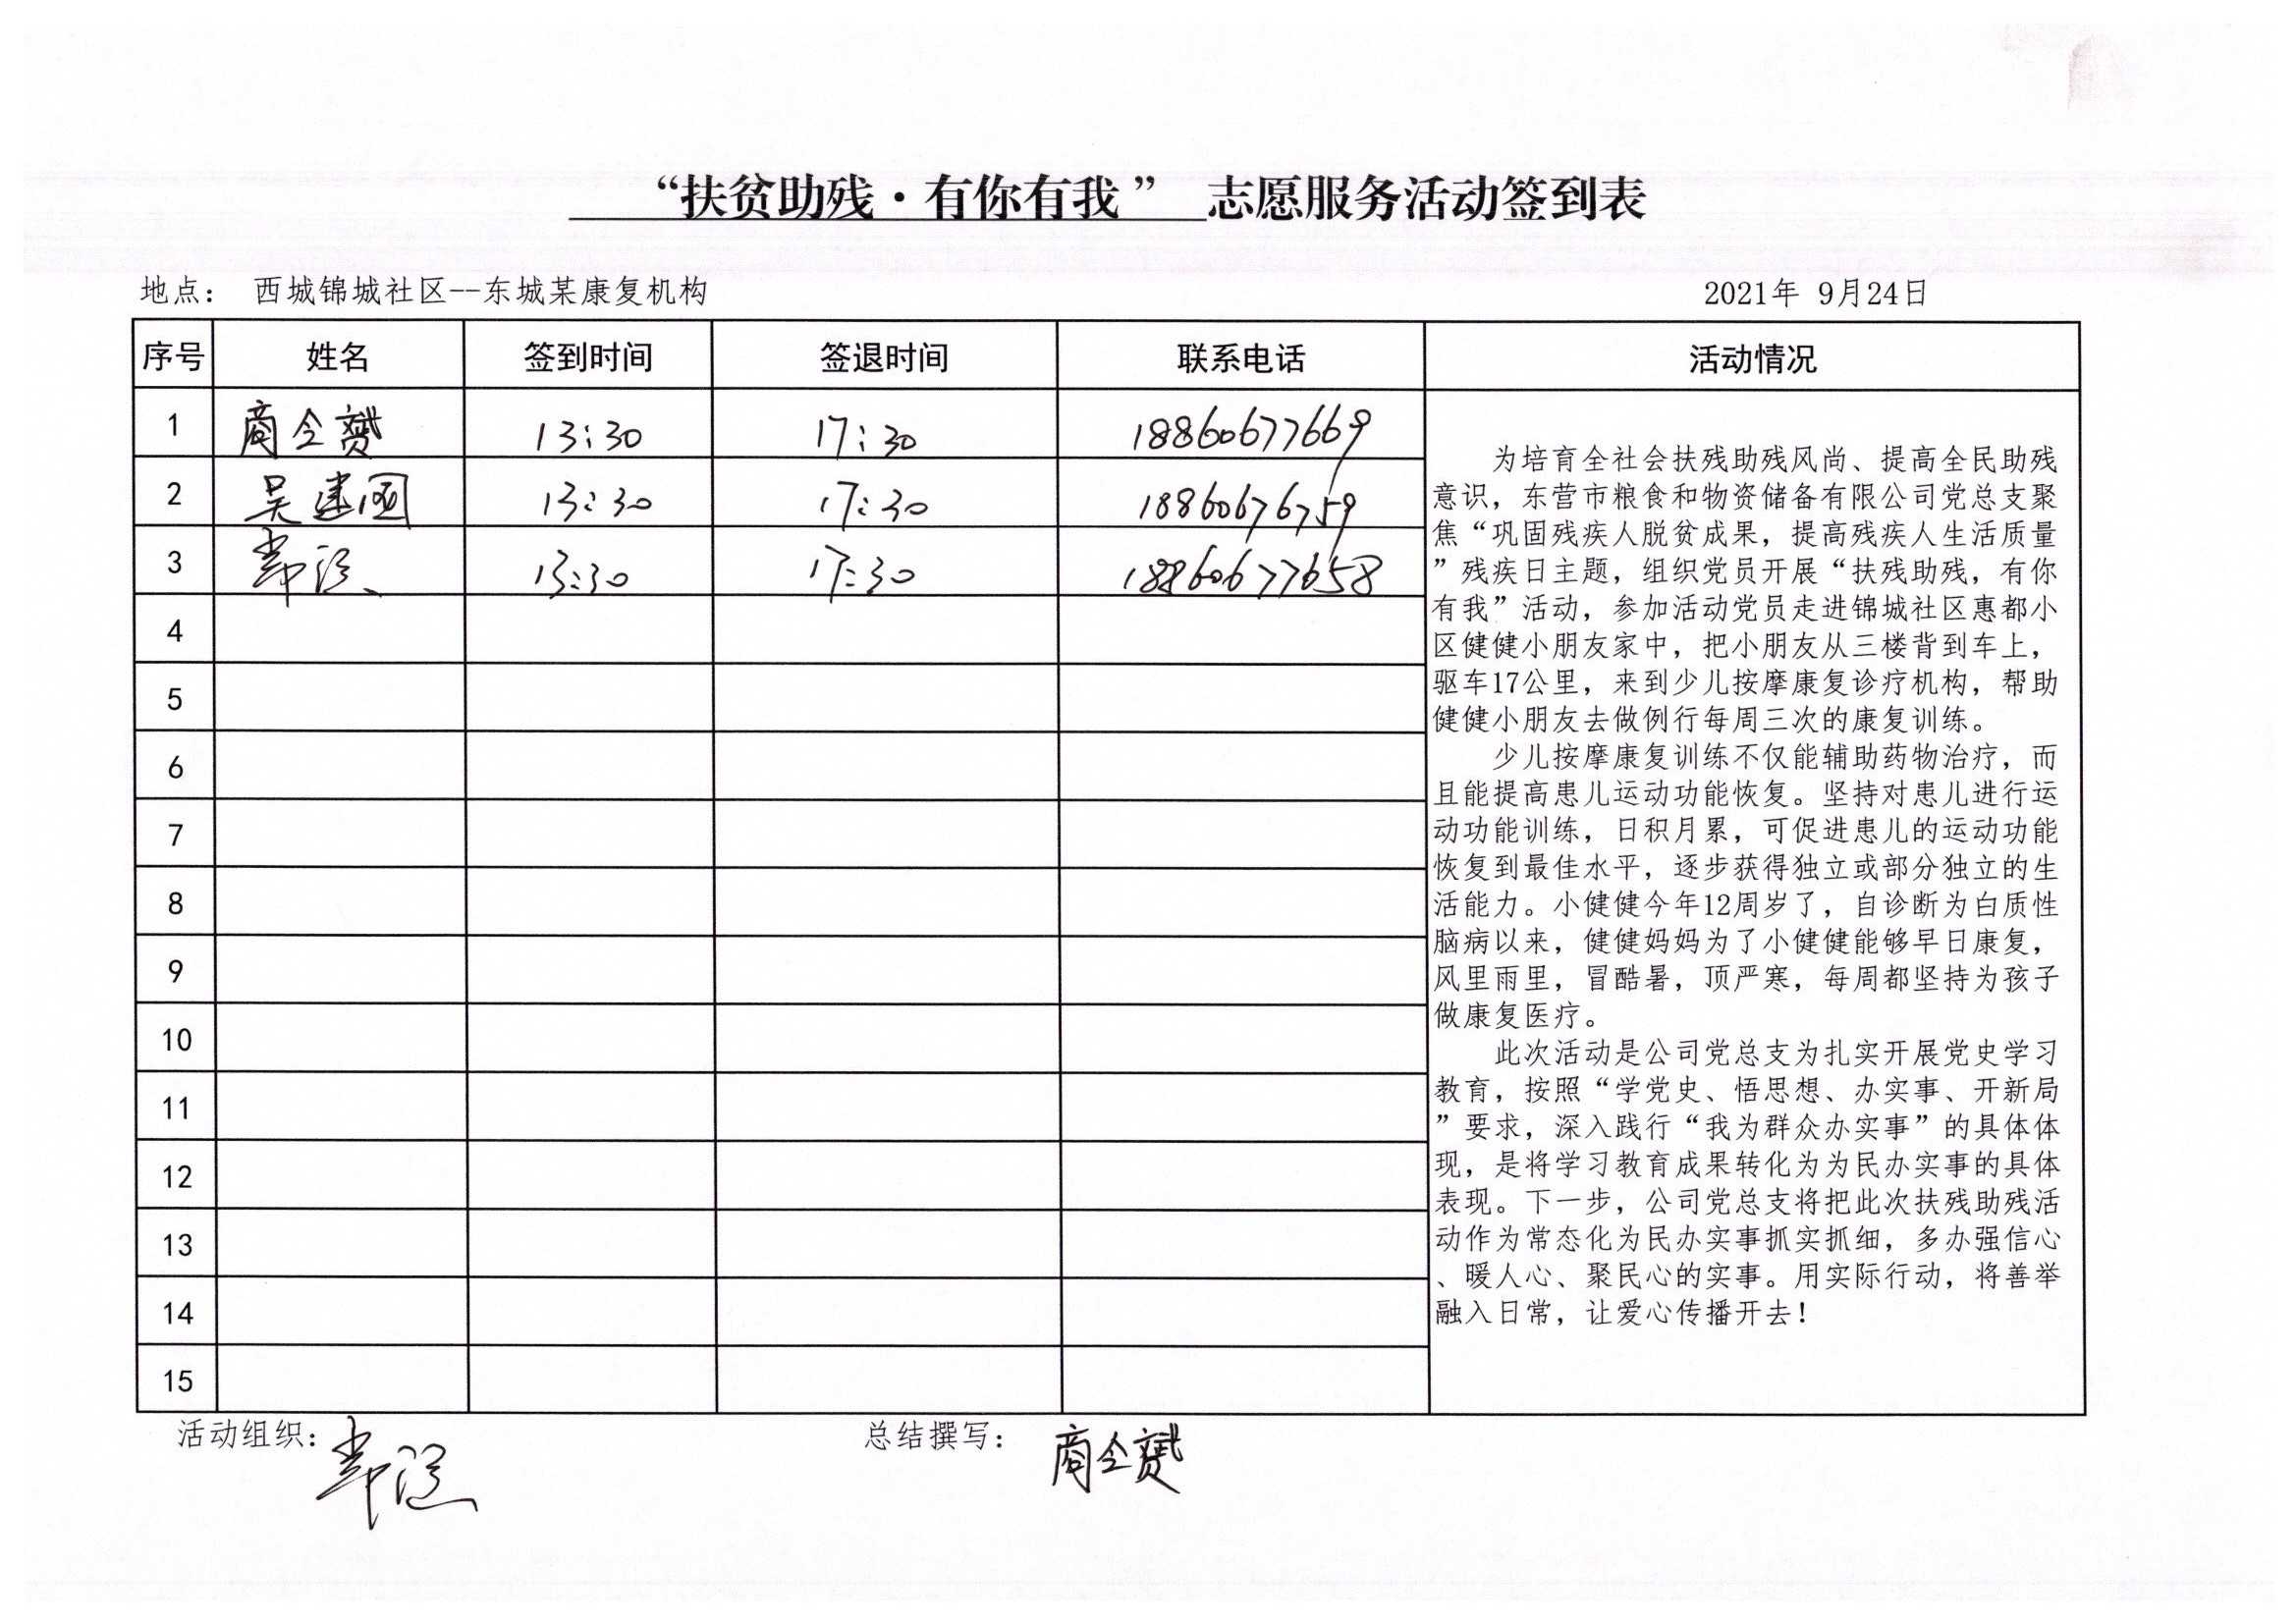 “扶贫助残·有你有我” 志愿服务活动签到表
地点： 西城锦城社区--东城某康复机构 2021年 9月24日
序号 姓名 签到时间 签退时间 联系电话 活动情况
1 商令赟 13:30 17:30 18860677669
2 吴建国 13:30 17:30 18860676759
3 13:30 17:30 18860677658
4
5
6
7
8
9
10
11
12
13
14
15
为培育全社会扶残助残风尚、提高全民助残
意识，东营市粮食和物资储备有限公司党总支聚
焦“巩固残疾人脱贫成果，提高残疾人生活质量
”残疾日主题，组织党员开展“扶残助残，有你
有我”活动，参加活动党员走进锦城社区惠都小
区健健小朋友家中，把小朋友从三楼背到车上，
驱车17公里，来到少儿按摩康复诊疗机构，帮助
健健小朋友去做例行每周三次的康复训练。
少儿按摩康复训练不仅能辅助药物治疗，而
且能提高患儿运动功能恢复。坚持对患儿进行运
动功能训练，日积月累，可促进患儿的运动功能
恢复到最佳水平，逐步获得独立或部分独立的生
活能力。小健健今年12周岁了，自诊断为白质性
脑病以来，健健妈妈为了小健健能够早日康复，
风里雨里，冒酷暑，顶严寒，每周都坚持为孩子
做康复医疗。
此次活动是公司党总支为扎实开展党史学习
教育，按照“学党史、悟思想、办实事、开新局
”要求，深入践行“我为群众办实事”的具体体
现，是将学习教育成果转化为为民办实事的具体
表现。下一步，公司党总支将把此次扶残助残活
动作为常态化为民办实事抓实抓细，多办强信心
、暖人心、聚民心的实事。用实际行动，将善举
融入日常，让爱心传播开去！
活动组织： 总结撰写： 商令赟